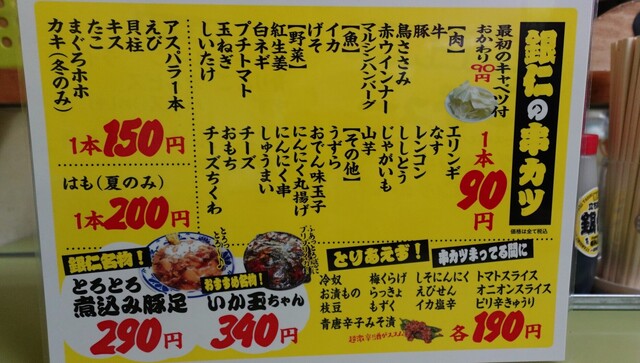 銀仁の串カツ
最初のキャベツ付
おかわり90円
1本90円
価格は全て税込
【肉】
牛
豚
鳥ささみ
赤ウインナー
マルシンハンバーグ
【魚】
イカ
げそ
【野菜】
紅生姜
白ネギ
プチトマト
玉ねぎ
しいたけ
エリンギ
なす
レンコン
ししとう
じゃがいも
山芋
【その他】
うずら
おでん味玉子
にんにく丸揚げ
にんにく串
しゅうまい
チーズ
おもち
チーズちくわ
アスパラ一本
えび
貝柱
キス
たこ
まぐろホホ
カキ(冬のみ)
1本150円
はも(夏のみ)
1本200円
銀仁名物!
とろとろ
煮込み豚足
290円
おすすめ名物!
いか玉ちゃん
340円
とりあえず!
冷奴
お漬もの
枝豆
青唐辛子みそ漬
梅くらげ
らっきょ
もずく
串カツまってる間に
しそにんにく
えびせん
イカ塩辛
トマトスライス
オニオンスライス
ピリ辛きゅうり
各190円